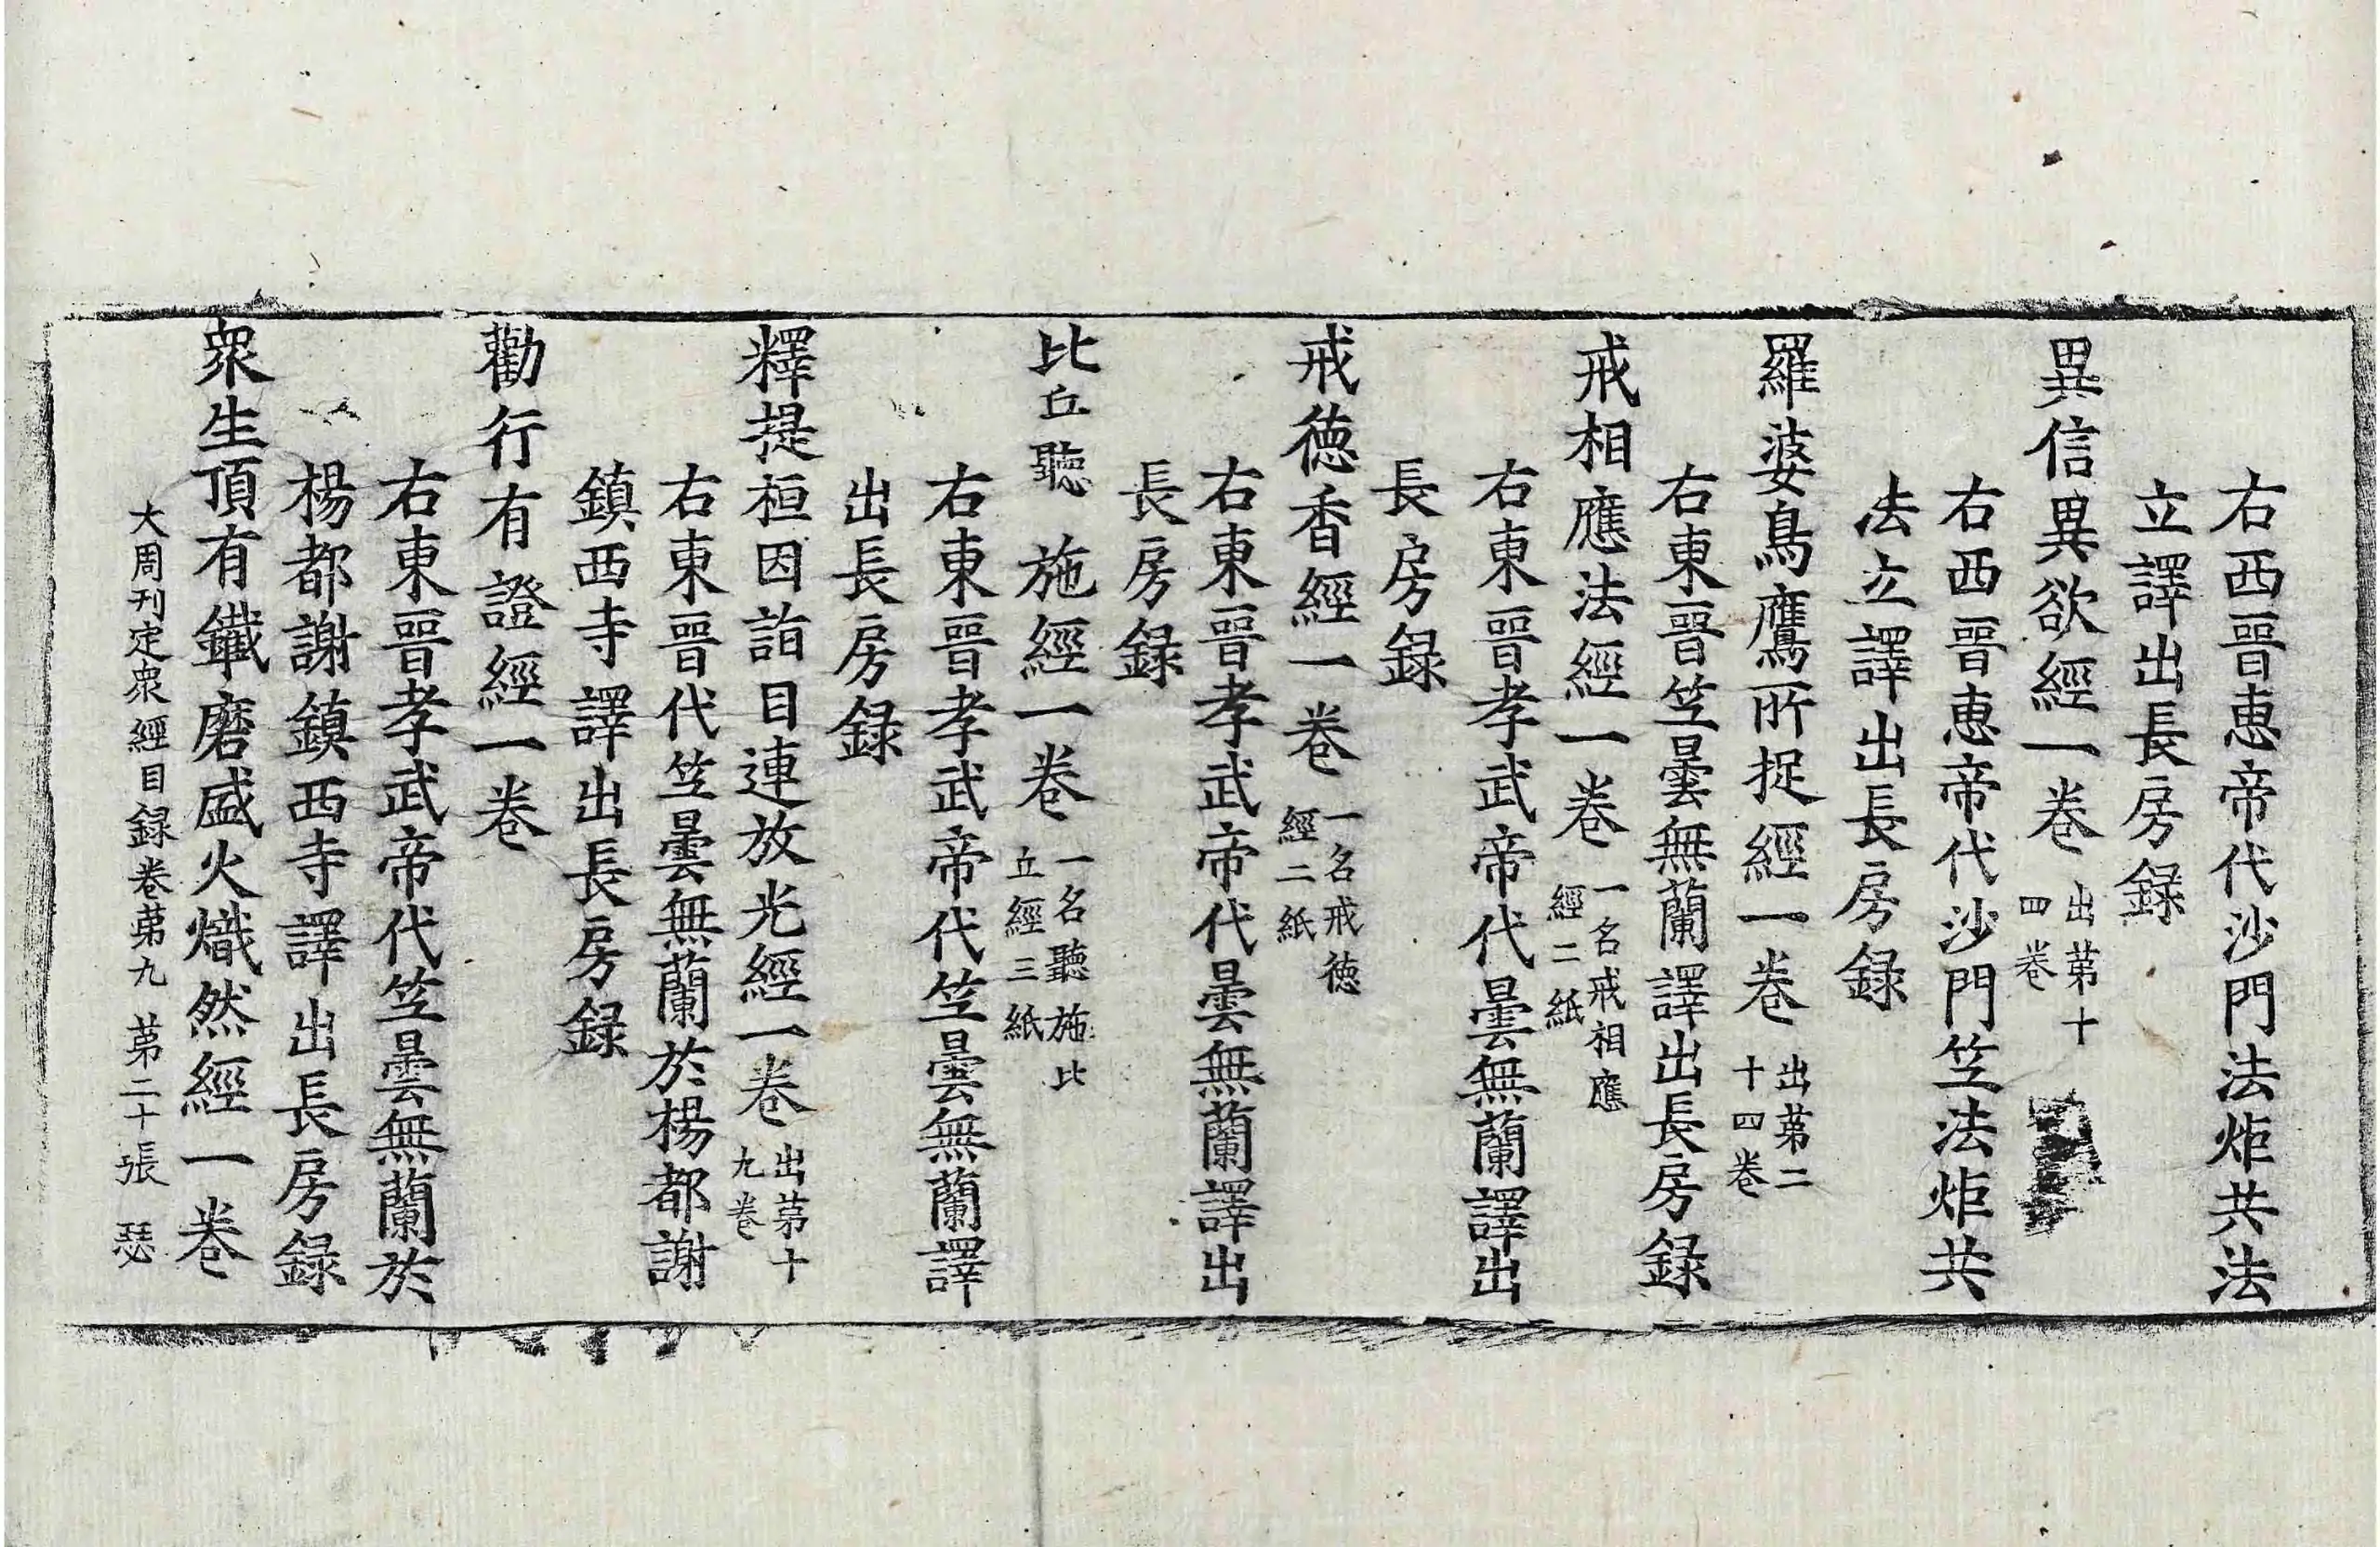 右西晉惠帝代沙門法炬共法
立譯出長房録
異信異欲經一卷 出苐十
四卷
右西晉惠帝代沙門竺法炬共
法立譯出長房録
羅婆鳥鷹所捉經一卷 出苐二
十四卷
右東晉竺曇無蘭譯出長房録
戒相應法經一卷 一名戒相應
經二紙
右東晉孝武帝代曇無蘭譯出
長房録
戒德香經一卷 一名戒德
經二紙
右東晉孝武帝代曇無蘭譯出
長房録
比丘聽施經一卷 一名聽施比
丘經三紙
右東晉孝武帝代竺曇無蘭譯
出長房録
釋提桓因詣目連放光經一卷 出苐十
九卷
右東晉代竺曇無蘭於楊都謝
鎮西寺譯出長房録
勸行有證經一卷
右東晉孝武帝代竺曇無蘭於
楊都謝鎮西寺譯出長房録
衆生頂有鐵磨盛火熾然經一卷
大周刊定衆經目録卷苐九 苐二十張 瑟